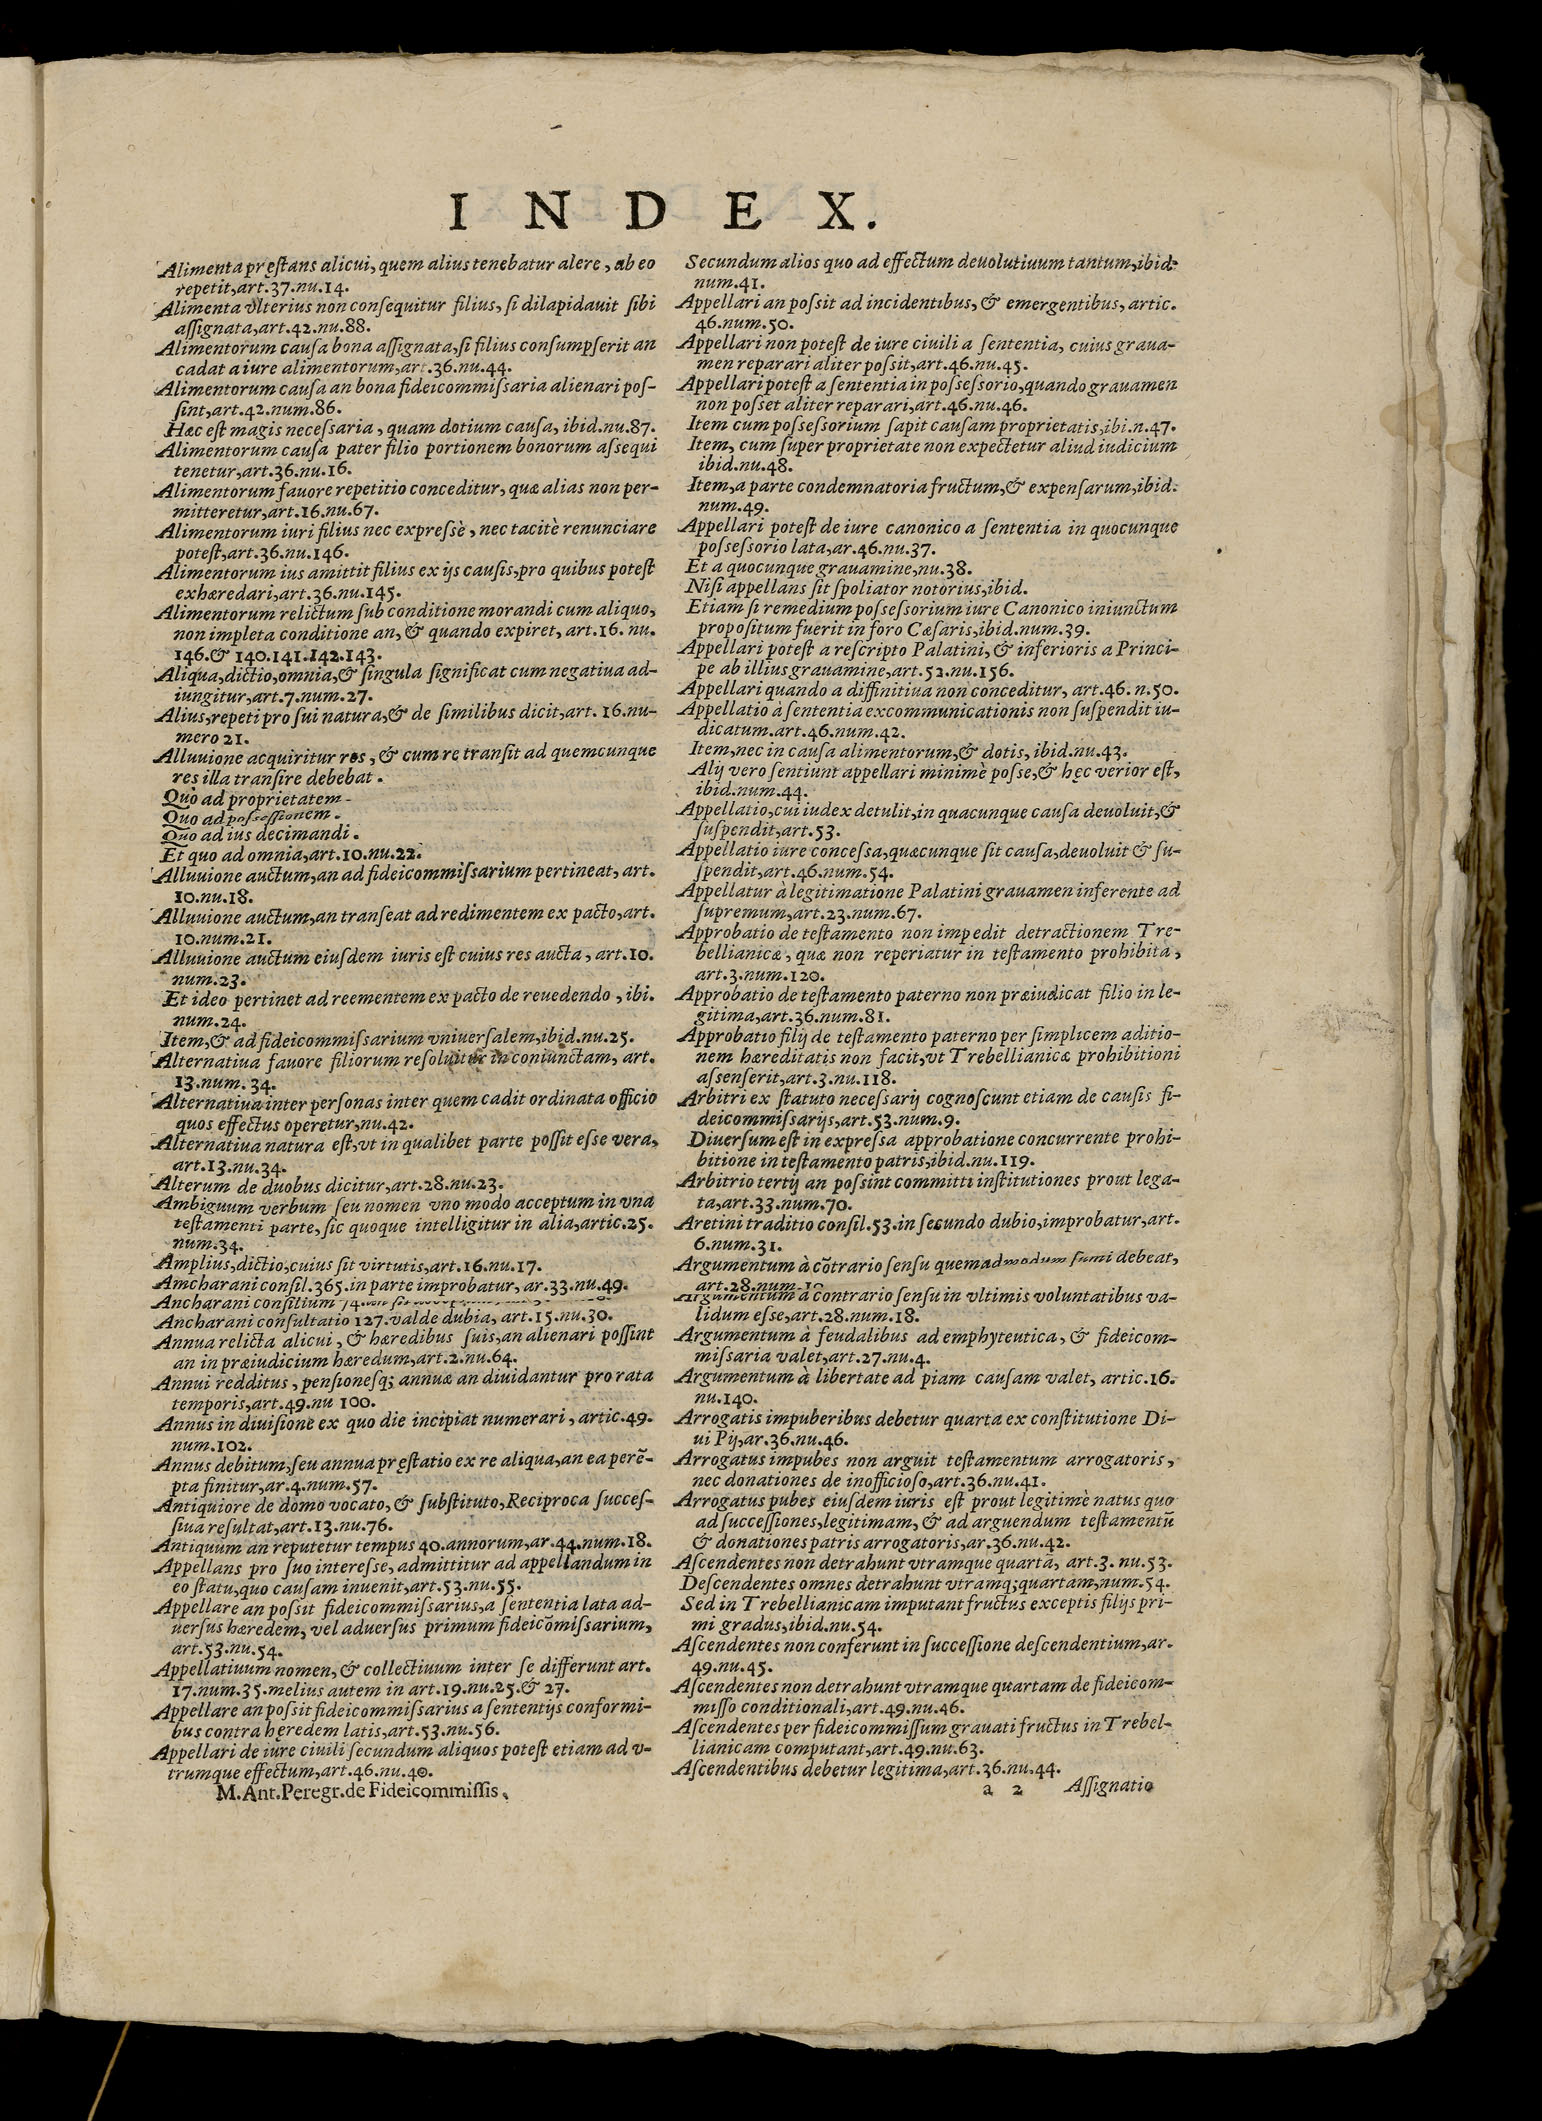 INDEX.
Alimenta pręſtans alicui, quem alius tenebatur alere, ab eo
repetit,art.37.nu.14.
Alimenta vlterius non conſequitur filius, ſi dilapidauit ſibi
aſſignata,art.42.nu.88.
Alimentorum cauſa bona aſſignata,ſi filius conſumpſerit an
cadat a iure alimentorum,art.36.nu.44.
Alimentorum cauſa an bona fideicommiſsaria alienari poſ-
ſint,art.42.num.86.
Hæc eſt magis neceſsaria, quam dotium cauſa, ibid.nu.87.
Alimentorum cauſa pater filio portionem bonorum aſsequi
tenetur,art.36.nu.16.
Alimentorum fauore repetitio conceditur, quæ alias non per-
mitteretur,art.16.nu.67.
Alimentorum iuri filius nec expreſsè, nec tacitè renunciare
poteſt,art.36.nu.146.
Alimentorum ius amittit filius ex ijs cauſis,pro quibus poteſt
exhæredari,art.36.nu.145.
Alimentorum relictum ſub conditione morandi cum aliquo,
non impleta conditione an,& quando expiret, art.16. nu.
146.& 140.141.142.143.
Aliqua,dictio,omnia,& ſingula ſignificat cum negatiua ad-
iungitur,art.7.num.27.
Alius,repeti pro ſui natura,& de ſimilibus dicit,art. 16.nu-
mero 21.
Alluuione acquiritur res, & cum re tranſit ad quemcunque
res illa tranſire debebat.
Quò ad proprietatem.
Quo ad poſseſſionem.
Quo ad ius decimandi.
Et quo ad omnia,art.10.nu.22.
Alluuione auctum,an ad fideicommiſsarium pertineat, art.
10.nu.18.
Alluuione auctum,an tranſeat ad redimentem ex pacto,art.
10.num.21.
Alluuione auctum eiuſdem iuris eſt cuius res aucta, art.10.
num.23.
Et ideo pertinet ad reementem ex pacto de reuedendo, ibi.
num.24.
Item,& ad fideicommiſsarium vniuerſalem,ibid.nu.25.
Alternatiua fauore filiorum reſoluitur in coniunctam, art.
13.num.34.
Alternatiua inter perſonas inter quem cadit ordinata officio
quos effectus operetur,nu.42.
Alternatiua natura eſt,vt in qualibet parte poſſit eſse vera,
art.13.nu.34.
Alterum de duobus dicitur,art.28.nu.23.
Ambiguum verbum ſeu nomen vno modo acceptum in vna
teſtamenti parte, ſic quoque intelligitur in alia,artic.25.
num.34.
Amplius,dictio,cuius ſit virtutis,art.16.nu.17.
Amcharani conſil.365.in parte improbatur, ar.33.nu.49.
Ancharani conſilium 74.
Ancharani conſultatio 127.valde dubia, art.15.nu.30.
Annua relicta alicui, & hæredibus ſuis,an alienari poſſint
an in præiudicium hæredum,art.2.nu.64.
Annui redditus, penſionesq; annuæ an diuidantur pro rata
temporis,art.49.nu 100.
Annus in diuiſione ex quo die incipiat numerari, artic.49.
num.102.
Annus debitum,ſeu annua pręſtatio ex re aliqua,an ea perẽ-
pta finitur,ar.4.num.57.
Antiquiore de domo vocato,& ſubſtituto,Reciproca ſucceſ-
ſiua reſultat,art.13.nu.76.
Antiquum an reputetur tempus 40.annorum,ar.44.num.18.
Appellans pro ſuo intereſse,admittitur ad appellandum in
eo ſtatu,quo cauſam inuenit,art.53.nu.55.
Appellare an poſsit fideicommiſsarius,a ſententia lata ad-
uerſus hæredem, vel aduerſus primum fideicõmiſsarium,
art.53.nu.54.
Appellatiuum nomen,& collectiuum inter ſe differunt art.
17.num.35.melius autem in art.19.nu.25.& 27.
Appellare an poſsit fideicommiſsarius a ſententijs conformi-
bus contra hęredem latis,art.53.nu.56.
Appellari de iure ciuili ſecundum aliquos poteſt etiam ad v-
trumque effectum,art.46.nu.40.
M.Ant.Peregr.de Fideicommiſſis.
Secundum alios quo ad effectum deuolutiuum tantum,ibid.
num.41.
Appellari an poſsit ad incidentibus,& emergentibus, artic.
46.num.50.
Appellari non poteſt de iure ciuili a ſententia, cuius graua-
men reparari aliter poſsit,art.46.nu.45.
Appellari poteſt a ſententia in poſseſsorio,quando grauamen
non poſset aliter reparari,art.46.nu.46.
Item cum poſseſsorium ſapit cauſam proprietatis,ibi.n.47.
Item, cum ſuper proprietate non expectetur aliud iudicium
ibid.nu.48.
Item,a parte condemnatoria fructum,& expenſarum,ibid.
num.49.
Appellari poteſt de iure canonico a ſententia in quocunque
poſseſsorio lata,ar.46.nu.37.
Et a quocunque grauamine,nu.38.
Niſi appellans ſit ſpoliator notorius,ibid.
Etiam ſi remedium poſseſsorium iure Canonico iniunctum
propoſitum fuerit in foro Cæſaris,ibid.num.39.
Appellari poteſt a reſcripto Palatini,& inferioris a Princi-
pe ab illius grauamine,art.52.nu.156.
Appellari quando a diffinitiua non conceditur, art.46.n.50.
Appellatio à ſententia excommunicationis non ſuſpendit iu-
dicatum.art.46.num.42.
Item,nec in cauſa alimentorum,& dotis, ibid.nu.43.
Alij vero ſentiunt appellari minimè poſse,& hęc verior eſt,
ibid.num.44.
Appellatio,cui iudex detulit,in quacunque cauſa deuoluit,&
ſuſpendit,art.53.
Appellatio iure conceſsa,quæcunque ſit cauſa,deuoluit & ſu-
ſpendit,art.46.num.54.
Appellatur à legitimatione Palatini grauamen inferente ad
ſupremum,art.23.num.67.
Approbatio de teſtamento non impedit detractionem Tre-
bellianicæ, quæ non reperiatur in teſtamento prohibita,
art.3.num.120.
Approbatio de teſtamento paterno non præiudicat filio in le-
gitima,art.36.num.81.
Approbatio filij de teſtamento paterno per ſimplicem aditio-
nem hæreditatis non facit,vt Trebellianicæ prohibitioni
aſsenſerit,art.3.nu.118.
Arbitri ex ſtatuto neceſsarij cognoſcunt etiam de cauſis fi-
deicommiſsarijs,art.53.num.9.
Diuerſum eſt in expreſsa approbatione concurrente prohi-
bitione in teſtamento patris,ibid.nu.119.
Arbitrio tertij an poſsint committi inſtitutiones prout lega-
ta,art.33.num.70.
Aretini traditio conſil.53.in ſecundo dubio,improbatur,art.
6.num.31.
Argumentum à cõtrario ſenſu quemadmodum ſumi debeat,
art.28.num.
Argumentum à contrario ſenſu in vltimis voluntatibus va-
lidum eſse,art.28.num.18.
Argumentum à feudalibus ad emphyteutica, & fideicom-
miſsaria valet,art.27.nu.4.
Argumentum à libertate ad piam cauſam valet, artic.16.
nu.140.
Arrogatis impuberibus debetur quarta ex conſtitutione Di-
ui Pij,ar.36.nu.46.
Arrogatus impubes non arguit teſtamentum arrogatoris,
nec donationes de inofficioſo,art.36.nu.41.
Arrogatus pubes eiuſdem iuris eſt prout legitimè natus quo
ad ſucceſſiones,legitimam,& ad arguendum teſtamentũ
& donationes patris arrogatoris,ar.36.nu.42.
Aſcendentes non detrahunt vtramque quartã, art.3. nu.53.
Deſcendentes omnes detrahunt vtramq;quartam,num.54.
Sed in Trebellianicam imputant fructus exceptis filijs pri-
mi gradus,ibid.nu.54.
Aſcendentes non conferunt in ſucceſſione deſcendentium,ar.
49.nu.45.
Aſcendentes non detrahunt vtramque quartam de fideicom-
miſſo conditionali,art.49.nu.46.
Aſcendentes per fideicommiſſum grauati fructus in Trebel-
lianicam computant,art.49.nu.63.
Aſcendentibus debetur legitima,art.36.nu.44.
a 2 Aſſignatio